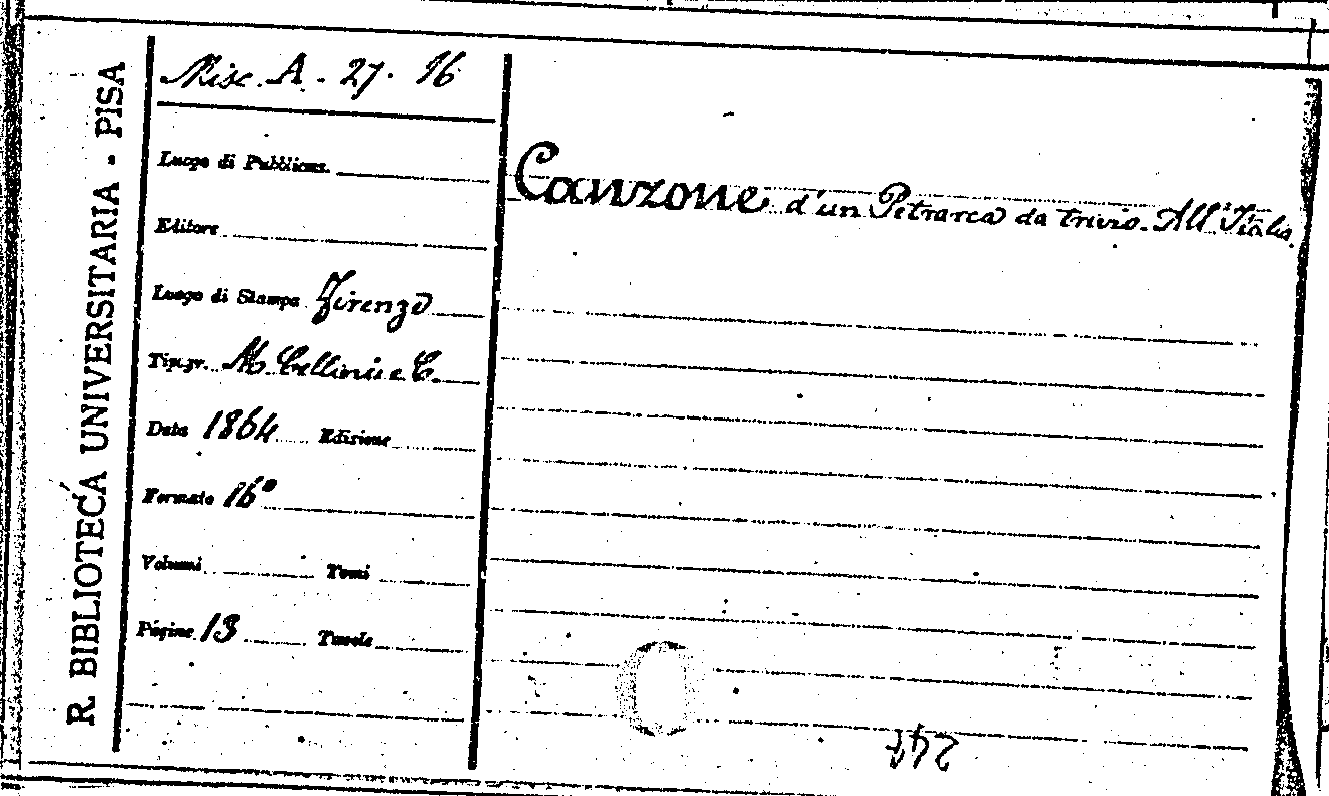 R. BIBLIOTECA UNIVERSITARIA - PISA
Misc. A. 27. 16
Luogo di Pubblicaz.
Editore
Luogo di Stampa Firenze
Tipogr. M. Cellini e C.
Data 1864 Edizione
Formato 16°
Volumi Tomi
Pagine 13 Tavole
Canzone d'un Petrarca da trivio. All'Italia.